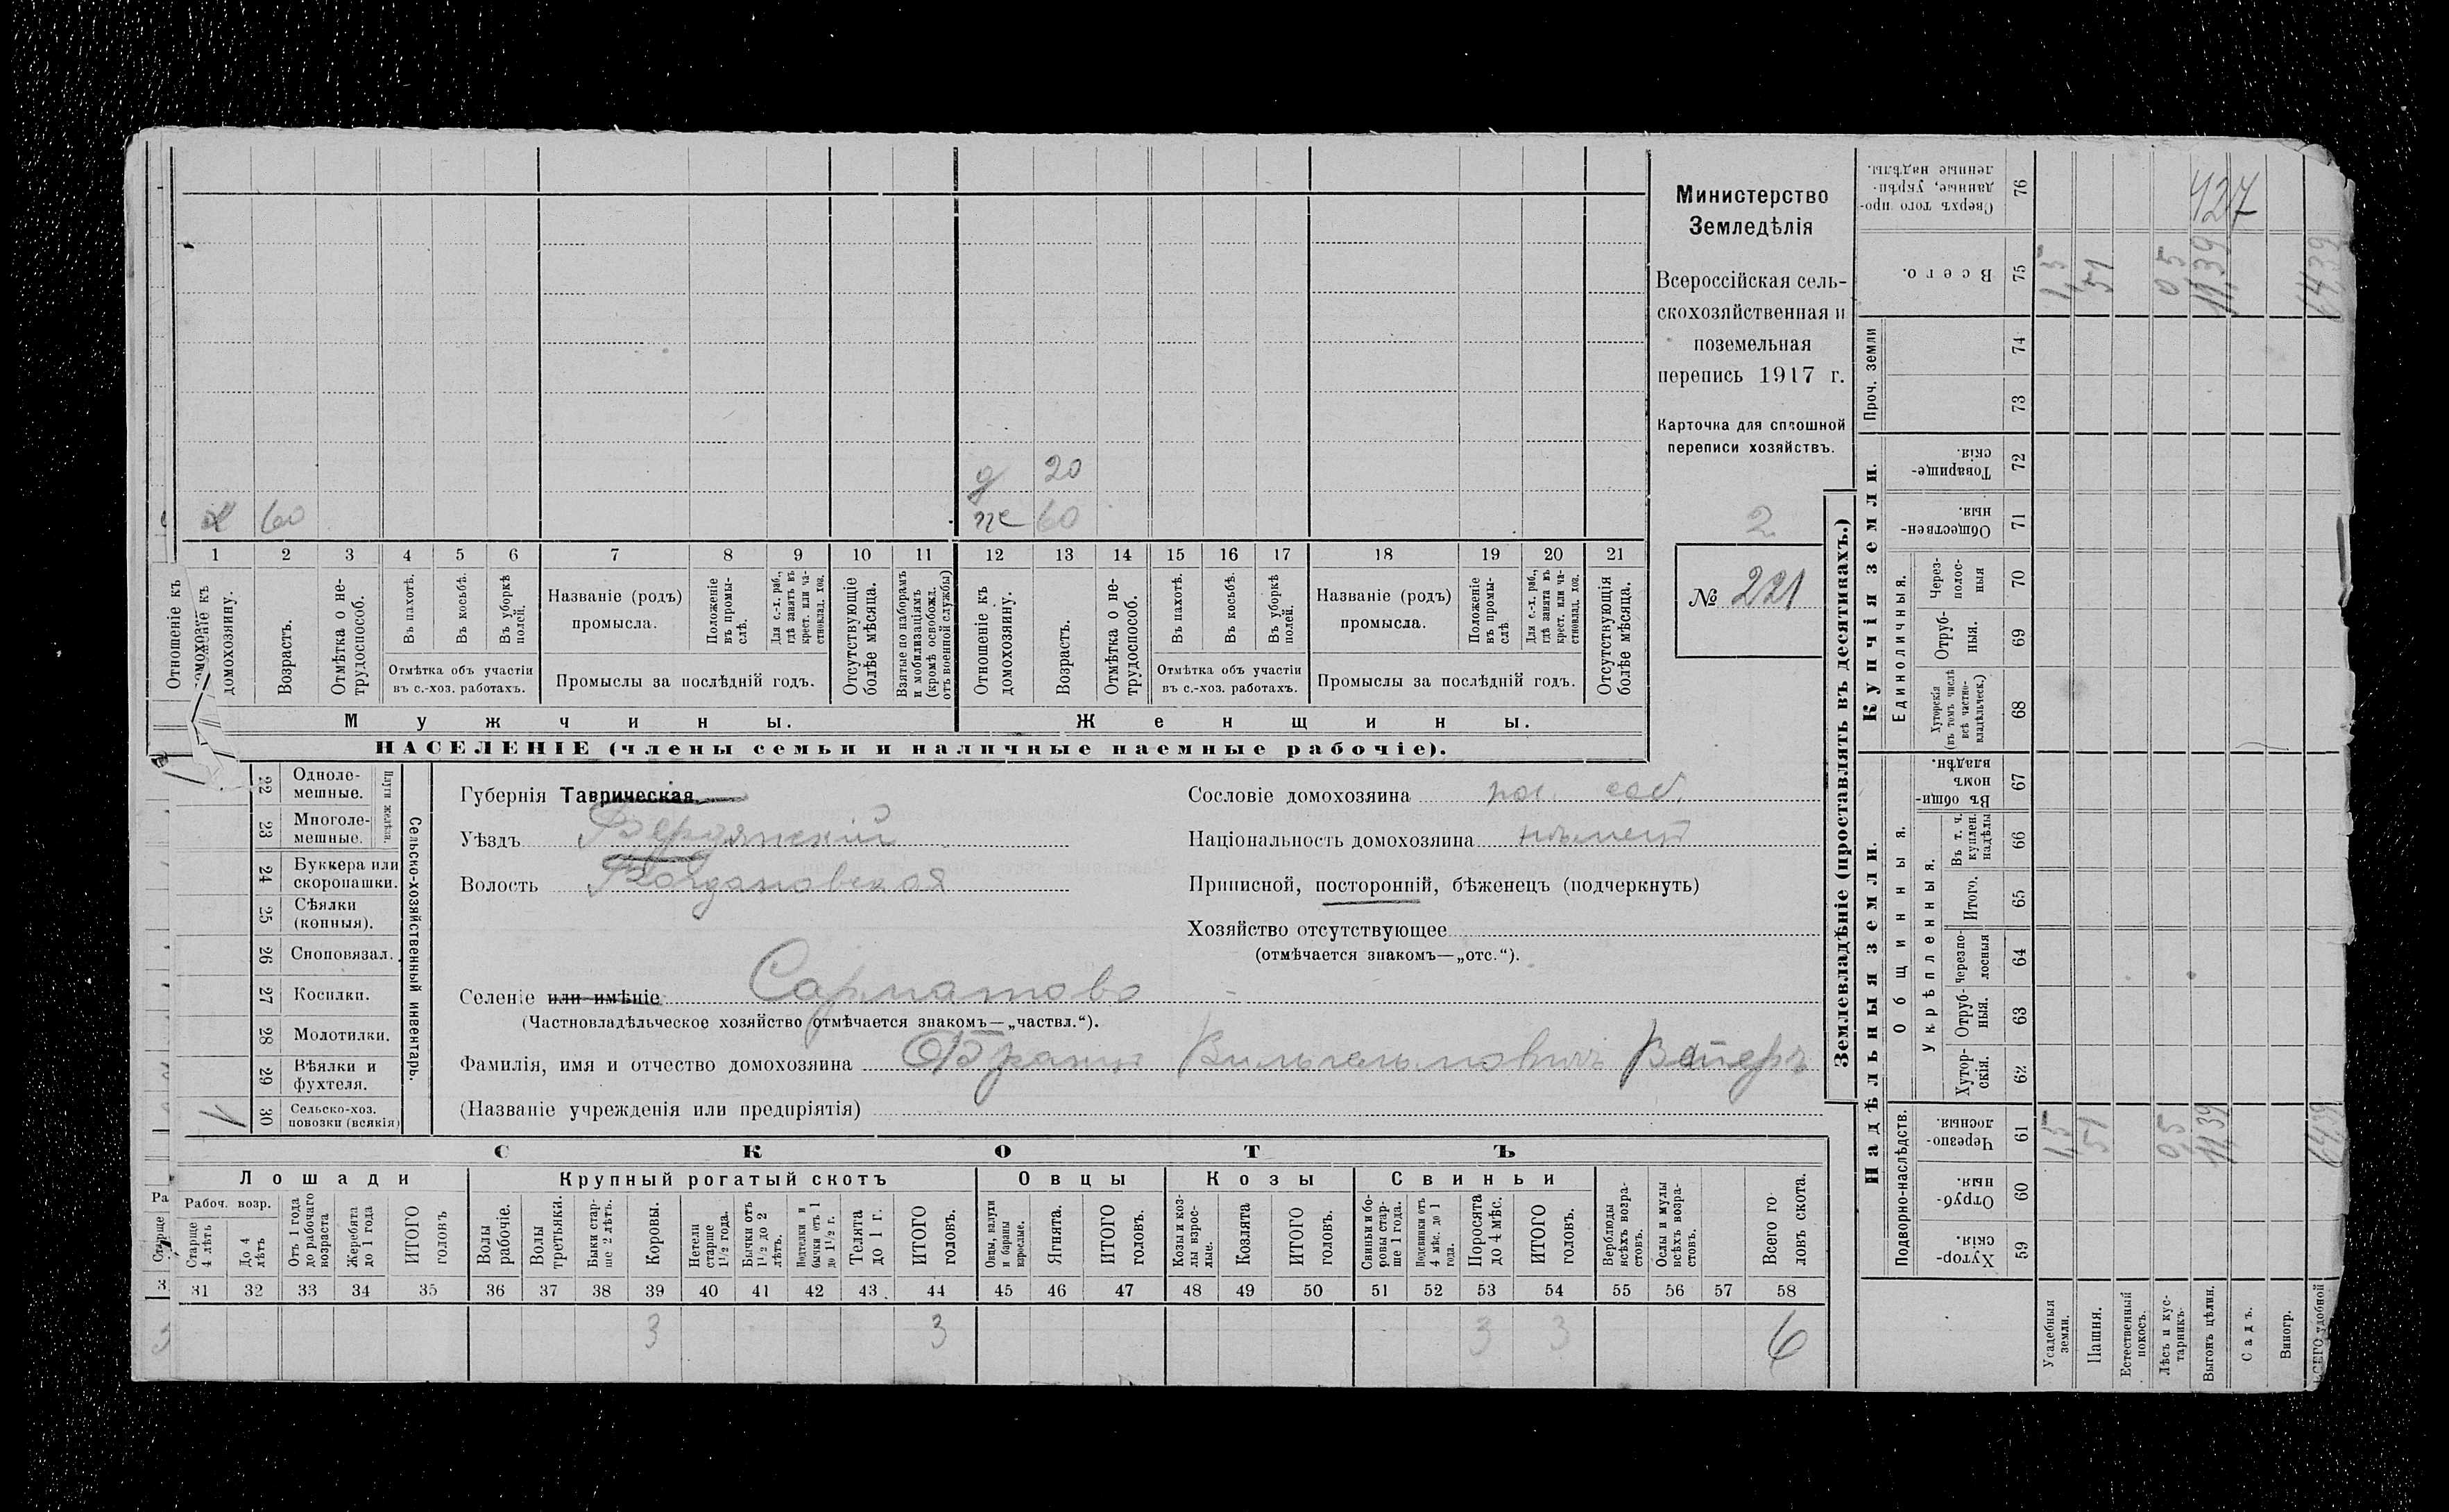 Министерство
Земледѣлія
Всероссійская сель-
скохозяйственная и
поземельная
перепись 1917 г.
Карточка для сплошной
переписи хозяйствъ.
2
№ 221
д 20
х 60
же 60
1 2 3 4 5 6 7 8 9 10 11 12 13 14 15 16 17 18 19 20 21
Отношеніе къ домохозяину.
Возрастъ.
Отмѣтка о не-трудоспособ.
Въ пахотѣ.
Въ косьбѣ.
Въ уборкѣ полей.
Отмѣтка объ участіи въ с.-хоз. работахъ.
Названіе (родъ) промысла.
Положеніе въ промы-слѣ.
Для с.-х. раб., гдѣ занятъ въ крест. или ча-стновлад. хоз.
Промыслы за послѣдній годъ.
Отсутствующіе болѣе мѣсяца.
Взятые по наборамъ и мобилизаціямъ (кромѣ освобожд. отъ военной службы)
Отношеніе къ домохозяину.
Возрастъ.
Отмѣтка о не-трудоспособ.
Въ пахотѣ.
Въ косьбѣ.
Въ уборкѣ полей.
Отмѣтка объ участіи въ с.-хоз. работахъ.
Названіе (родъ) промысла.
Положеніе въ промы-слѣ.
Для с.-х. раб., гдѣ занята въ крест. или ча-стновлад. хоз.
Промыслы за послѣдній годъ.
Отсутствующія болѣе мѣсяца.
Мужчины. Женщины.
НАСЕЛЕНІЕ (члены семьи и наличные наемные рабочіе).
22 Одноле-мешные.
23 Многоле-мешные.
24 Буккера или скоропашки.
25 Сѣялки (конныя).
26 Сноповязал.
27 Косилки.
28 Молотилки.
29 Вѣялки и фухтеля.
30 Сельско-хоз. повозки (всякія)
Сельско-хозяйственный инвентарь.
Губернія Таврическая
Уѣздъ Бердянскій
Волость Богдановская
Селеніе или имѣніе Сарматово
(Частновладѣльческое хозяйство отмѣчается знакомъ—„частвл.“).
Фамилія, имя и отчество домохозяина Францъ Вильгельмовичъ
(Названіе учрежденія или предпріятія)
Сословіе домохозяина пос. соб.
Національность домохозяина нѣмецъ
Приписной, посторонній, бѣженецъ (подчеркнуть)
Хозяйство отсутствующее
(отмѣчается знакомъ—„отс.“).
СКОТЪ
Лошади Крупный рогатый скотъ Овцы Козы Свиньи
Рабоч. возр.
Старше 4 лѣтъ
До 4 лѣтъ
Отъ 1 года до рабочаго возраста
Жеребята до 1 года
ИТОГО головъ
Волы рабочіе.
Волы третьяки.
Быки стар-ше 2 лѣтъ.
Коровы.
Нетели старше 1½ года.
Бычки отъ 1½ до 2 лѣтъ.
Подтелки и бычки отъ 1 до 1½ г.
Телята до 1 г.
ИТОГО головъ.
Овцы, валухи и бараны взрослые.
Ягнята.
ИТОГО головъ.
Козы и коз-лы взрос-лые.
Козлята
ИТОГО головъ.
Свиньи и бо-ровы стар-ше 1 года.
Подсвинки отъ 4 мѣс. до 1 года.
Поросята до 4 мѣс.
ИТОГО головъ.
Верблюды всѣхъ возра-стовъ.
Ослы и мулы всѣхъ возра-стовъ.
Всего го-ловъ скота.
31 32 33 34 35 36 37 38 39 40 41 42 43 44 45 46 47 48 49 50 51 52 53 54 55 56 57 58
3 3 3 3 6
Землевладѣніе (проставлять въ десятинахъ.)
Надѣльныя земли. Купчія земли. Проч. земли
Подворно-наслѣдств.
Общинныя.
Укрѣпленныя.
Единоличныя.
Сверхъ того про-данные, укрѣп-ленные надѣлы. 76
Всего. 75
74
73
Товарище-скія. 72
Обществен-ныя. 71
Через-полос-ныя 70
Отруб-ныя. 69
Хуторскія (въ томъ числѣ всѣ частно-владѣльческ.) 68
Въ общин-номъ владѣн. 67
Въ т. ч. куплен. надѣлы 66
Итого. 65
Черезпо-лосныя 64
Отруб-ныя. 63
Хутор-скія. 62
Черезпо-лосныя. 61
Отруб-ныя. 60
Хутор-скія. 59
Усадебныя земли.
Пашня.
Естественный покосъ.
Лѣсъ и кус-тарникъ.
Выгонъ цѣлин.
Садъ.
Виногр.
ВСЕГО удобной
427
1,5 51 0,5 11,39 64,39
1,5 51 0,5 11,39 64,39